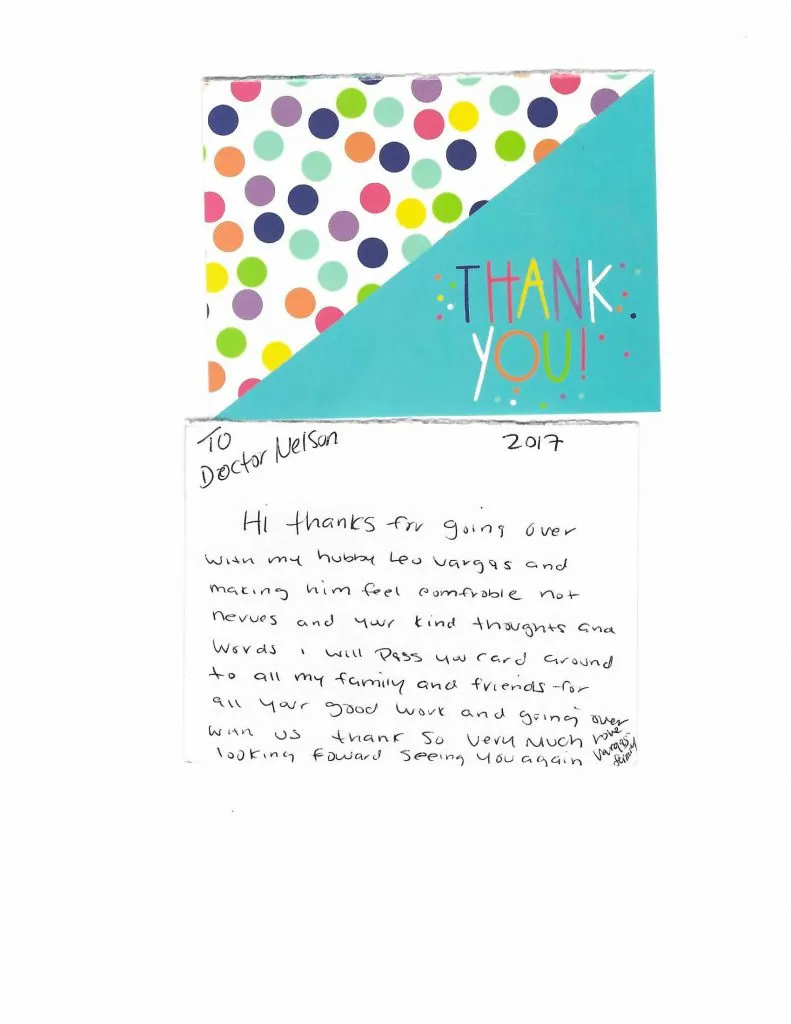 THANK
YOU!
TO
Doctor Nelson
2017
Hi thanks for going over
with my hubby Leo Vargas and
making him feel comfroble not
nerves and your kind thoughts and
words i will pass you card around
to all my family and friends for
all your good work and going over
with us thank so very much
looking foward seeing you again
love
Vargas
family